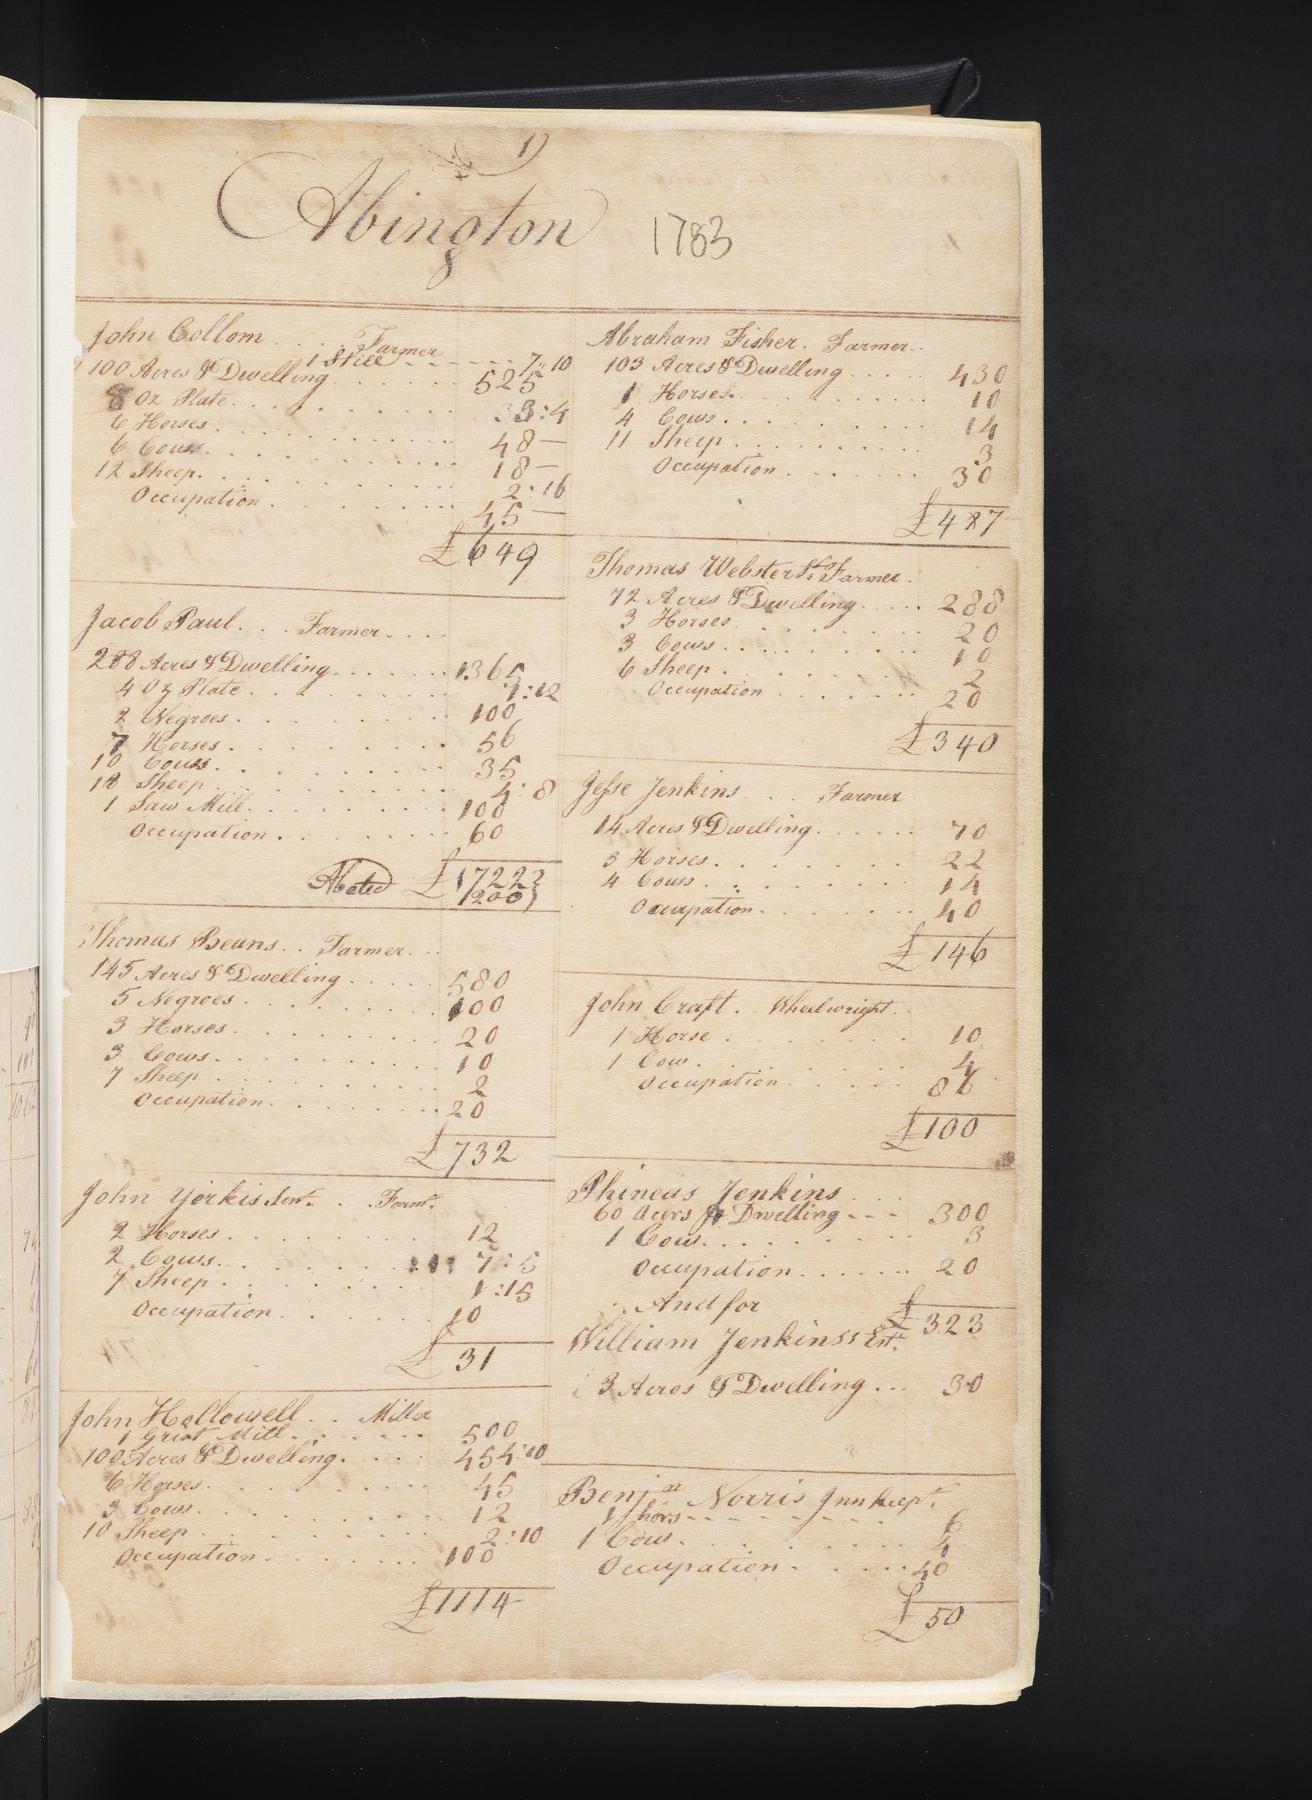 1)
Abington 1783
John Collom . . . Farmer
1 Still - - - - 7" 10
100 Acres & Dwelling . . . . . 525
8 oz Plate . . . . . 3:4
6 Horses . . . . . 48 —
6 Cows . . . . . 18 —
12 Sheep . . . . . 2:16
Occupation . . . . . 45 —
£649
Jacob Paul . . . Farmer . . . .
288 Acres & Dwelling . . . . . 1365
4 Oz Plate . . . . . 1:12
2 Negroes . . . . . 100
7 Horses . . . . . 56
10 Cows . . . . . 35
18 Sheep . . . . . 4:8
1 Saw Mill . . . . . 100
Occupation . . . . . 60
Abated £1722
1200
Thomas Beans . . Farmer . . .
145 Acres & Dwelling . . . . . 580
5 Negroes . . . . . 100
3 Horses . . . . . 20
3 Cows . . . . . 10
7 Sheep . . . . . 2
Occupation . . . . . 20
£732
John Yorkis Senr. . Farmr.
2 Horses . . . . . 12
2 Cows . . . . . 7:5
7 Sheep . . . . . 1:15
Occupation . . . . . 10
£31
John Hollowell . . Miller
1 Grist Mill . . . . . 500
100 Acres & Dwelling . . . . 454:10
6 Horses . . . . . 45
3 Cows . . . . . 12
10 Sheep . . . . . 2:10
Occupation . . . . . 100
£1114
Abraham Fisher . Farmer . .
103 Acres & Dwelling . . . . . 430
1 Horses . . . . . 10
4 Cows . . . . . 14
11 Sheep . . . . . 3
Occupation . . . . . 30
£487
Thomas Webster Farmer .
72 Acres & Dwelling . . . . . 288
3 Horses . . . . . 20
3 Cows . . . . . 10
6 Sheep . . . . . 2
Occupation . . . . . 20
£340
Jesse Jenkins . . . Farmer
14 Acres & Dwelling . . . . . 70
3 Horses . . . . . 22
4 Cows . . . . . 14
Occupation . . . . . 40
£146
John Craft . . Wheelwright . .
1 Horse . . . . . 10
1 Cow . . . . . 4
Occupation . . . . . 86
£100
Phineas Jenkins . . .
60 Acurs & Dwelling - - - 300
1 Cow . . . . . 3
Occupation . . . . . 20
£323
And for
William Jenkinss Est.
3 Acres & Dwelling . . . 30
Benjn Norris Innkeepr.
1 hors - - - - - 6
1 Cow . . . . . 4
Occupation . . . . . 40
£50